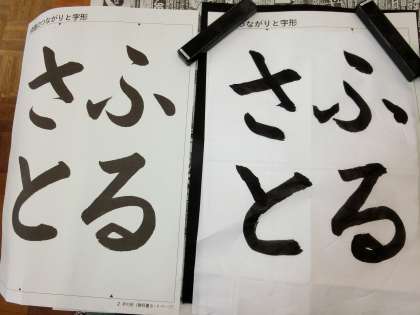 つながりと字形
ふる
さと
ながりと字形
ふる
さと